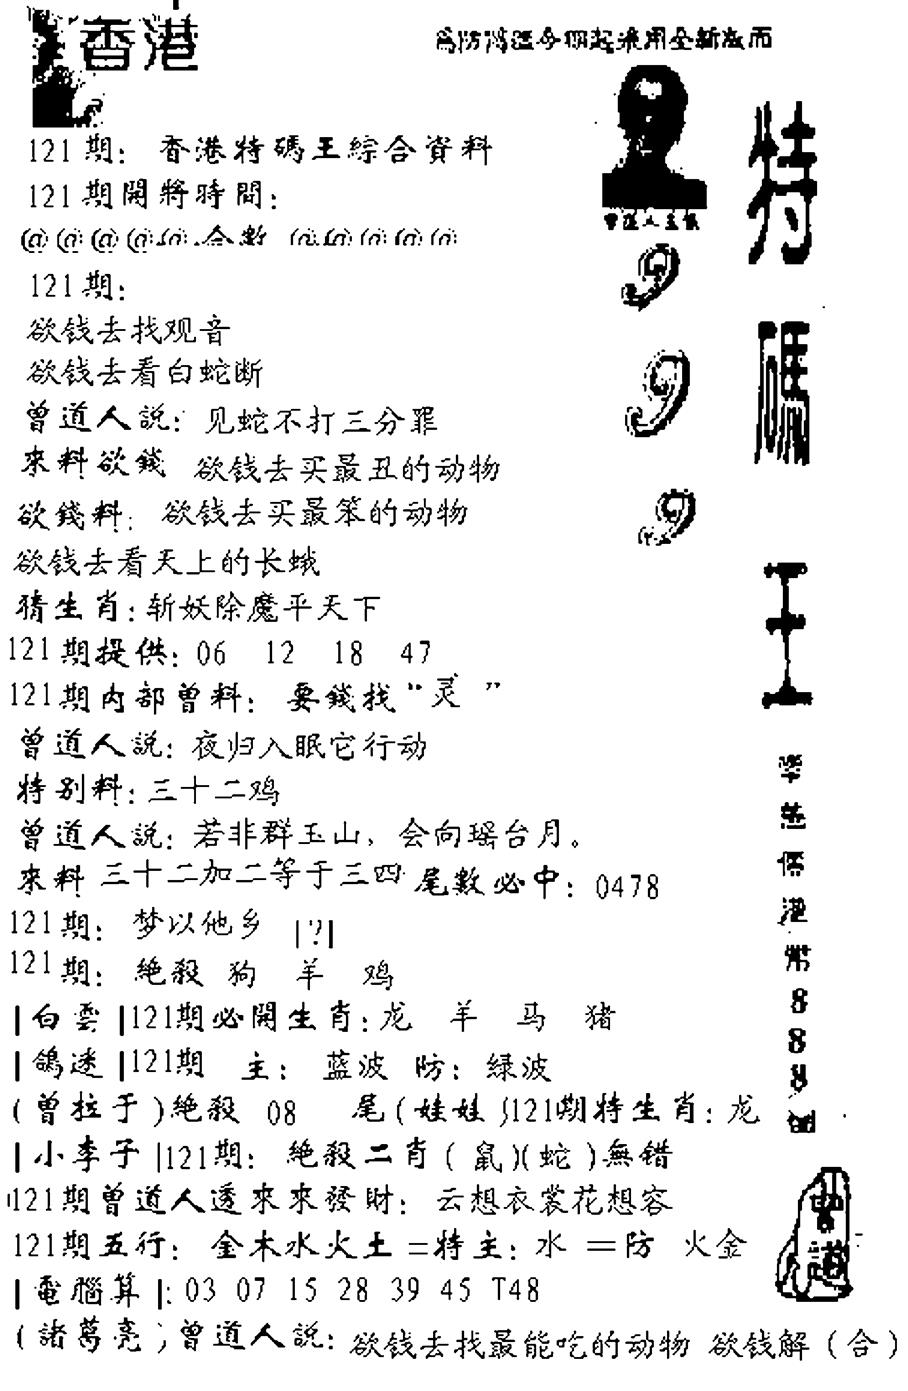 香港
為防濫造今期起采用全新版面
121期: 香港特碼王綜合資料
121期開將時間:
@@@@@.合數 @@@@@
121期:
欲钱去找观音
欲钱去看白蛇断
曾道人説: 见蛇不打三分罪
來料欲錢 欲钱去买最丑的动物
欲錢料: 欲钱去买最笨的动物
欲钱去看天上的长蛾
猜生肖:斩妖除魔平天下
121期提供: 06 12 18 47
121期内部曾料: 要錢找“灵 ”
曾道人説: 夜归入眠它行动
特别料:三十二鸡
曾道人説: 若非群玉山, 会向瑶台月。
來料 三十二加二等于三四 尾數必中: 0478
121期: 梦以他乡 |?|
121期: 絶殺 狗 羊 鸡
|白雲|121期必開生肖:龙 羊 马 猪
|鴿迷|121期 主: 蓝波 防: 緑波
(曾拉于)絶殺 08 尾(娃娃)121期特生肖: 龙
|小李子|121期: 絶殺二肖(鼠)(蛇)無错
121期曾道人透來來發財: 云想衣裳花想容
121期五行: 金木水火土=特主: 水 =防 火金
|電腦算|:03 07 15 28 39 45 T48
(諸葛亮)曾道人説: 欲钱去找最能吃的动物 欲钱解(合)
曾道人
999
特碼王
港
888